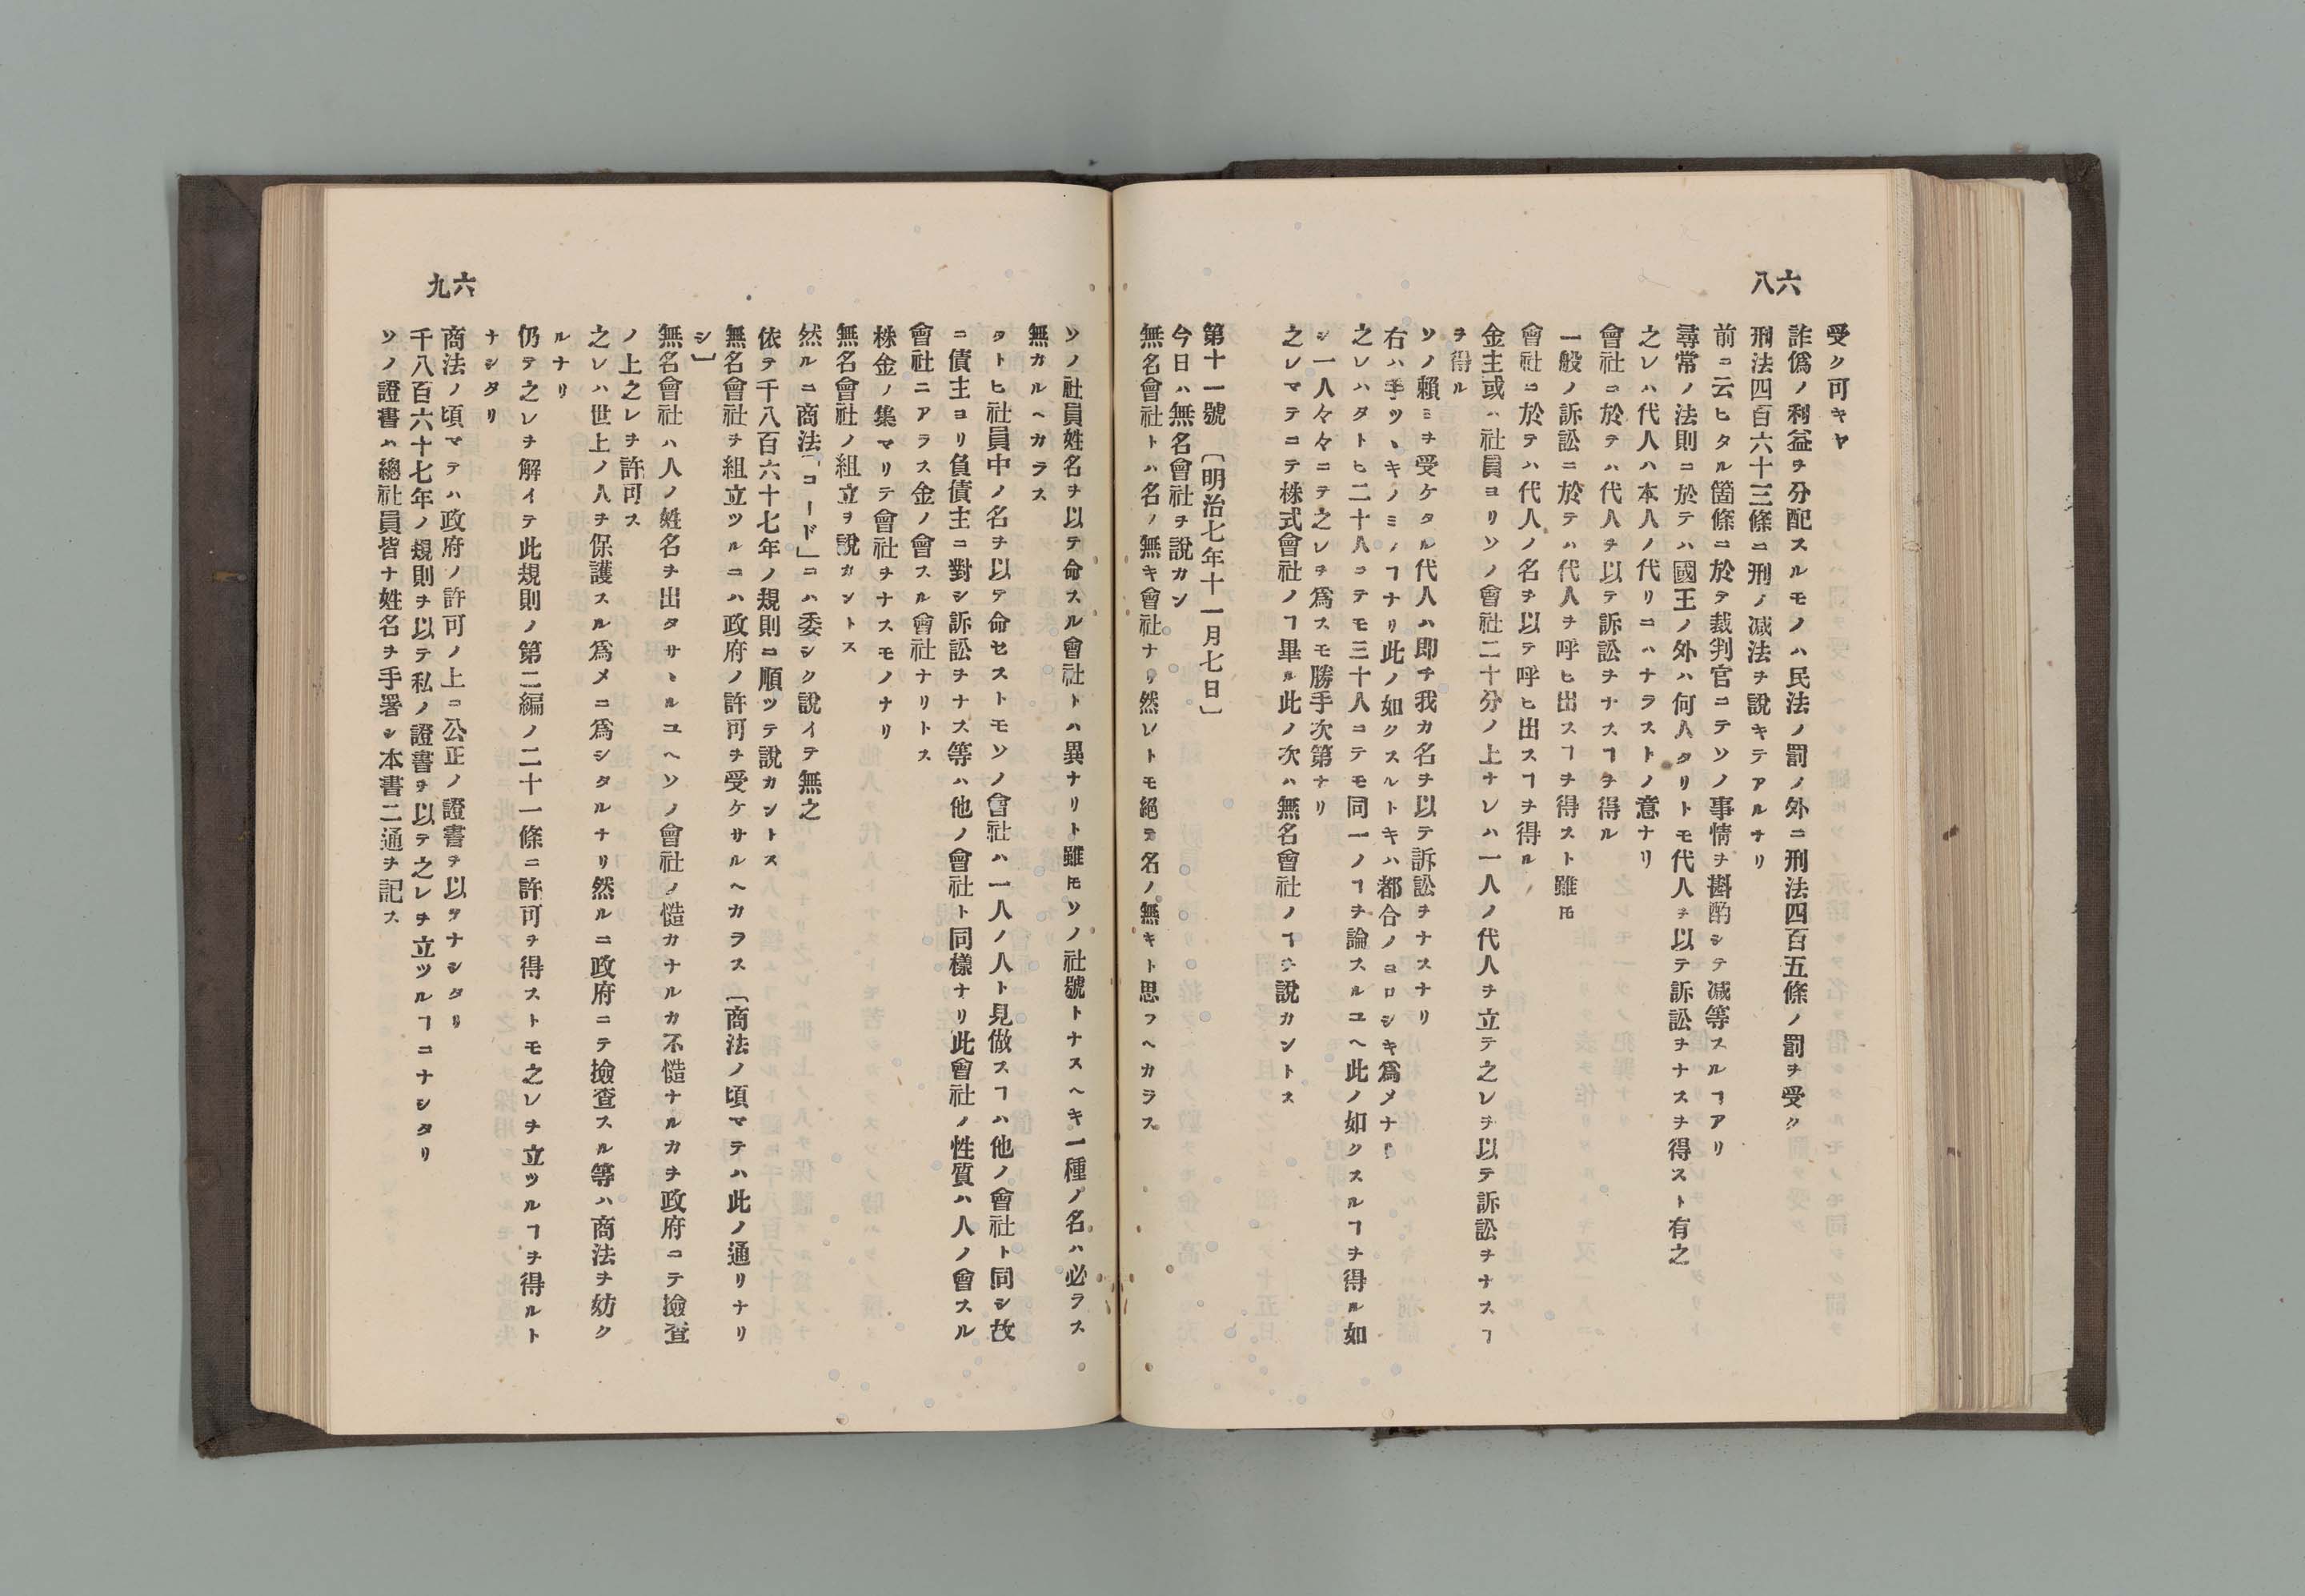 六八
受ク可キヤ
詐僞ノ利益ヲ分配スルモノハ民法ノ罰ノ外ニ刑法四百五條ノ罰ヲ受ク
刑法四百六十三條ニ刑ノ減法ヲ說キテアルナリ
前ニ云ヒタル箇條ニ於テ裁判官ニテソノ事情ヲ斟酌シテ減等スルヿアリ
尋常ノ法則ニ於テハ國王ノ外ハ何人タリトモ代人ヲ以テ訴訟ヲナスヲ得スト有之
之レハ代人ハ本人ノ代リニハナラストノ意ナリ
會社ニ於テハ代人ヲ以テ訴訟ヲナスヿヲ得ル
一般ノ訴訟ニ於テハ代人ヲ呼ヒ出スヿヲ得スト雖𪜈
會社ニ於テハ代人ノ名ヲ以テ呼ヒ出スヿヲ得ル
金主或ハ社員ヨリソノ會社二十分ノ上ナレハ一人ノ代人ヲ立テ之レヲ以テ訴訟ヲナスヿ
ヲ得ル
ソノ賴ミヲ受ケタル代人ハ卽チ我カ名ヲ以テ訴訟ヲナスナリ
右ハ手ツヽキノミノヿナリ此ノ如クスルトキハ都合ノヨロシキ爲メナリ
之レハタトヒ二十人ニテモ三十人ニテモ同一ノヿヲ論スルユヘ此ノ如クスルヿヲ得ル如
シ一人々々ニテ之レヲ爲スモ勝手次第ナリ
之レマテニテ株式會社ノヿ畢ル此ノ次ハ無名會社ノヿヲ說カントス
第十一號　〔明治七年十一月七日〕
今日ハ無名會社ヲ說カン
無名會社トハ名ノ無キ會社ナリ然レトモ絕テ名ノ無キト思フヘカラス
六九
ソノ社員姓名ヲ以テ命スル會社トハ異ナリト雖𪜈ソノ社號トナスヘキ一種ノ名ハ必ラス
無カルヘカラス
タトヒ社員中ノ名ヲ以テ命セストモソノ會社ハ一人ノ人ト見做スヿハ他ノ會社ト同シ故
ニ債主ヨリ負債主ニ對シ訴訟ヲナス等ハ他ノ會社ト同樣ナリ此會社ノ性質ハ人ノ會スル
會社ニアラス金ノ會スル會社ナリトス
株金ノ集マリテ會社ヲナスモノナリ
無名會社ノ組立ヲ說カントス
然ルニ商法「コード」ニハ委シク說イテ無之
依テ千八百六十七年ノ規則ニ順ツテ說カントス
無名會社ヲ組立ツルニハ政府ノ許可ヲ受ケサルヘカラス〔商法ノ頃マテハ此ノ通リナリ
シ〕
無名會社ハ人ノ姓名ヲ出タサヽルユヘソノ會社ノ慥カナルカ不慥ナルカヲ政府ニテ撿查
ノ上之レヲ許可ス
之レハ世上ノ人ヲ保護スル爲メニ爲シタルナリ然ルニ政府ニテ撿查スル等ハ商法ヲ妨ク
ルナリ
仍テ之レヲ解イテ此規則ノ第二編ノ二十一條ニ許可ヲ得ストモ之レヲ立ツルヿヲ得ルト
ナシタリ
商法ノ頃マテハ政府ノ許可ノ上ニ公正ノ證書ヲ以テナシタリ
千八百六十七年ノ規則ヲ以テ私ノ證書ヲ以テ之レヲ立ツルヿニナシタリ
ソノ證書ハ總社員皆ナ姓名ヲ手署シ本書二通ヲ記ス